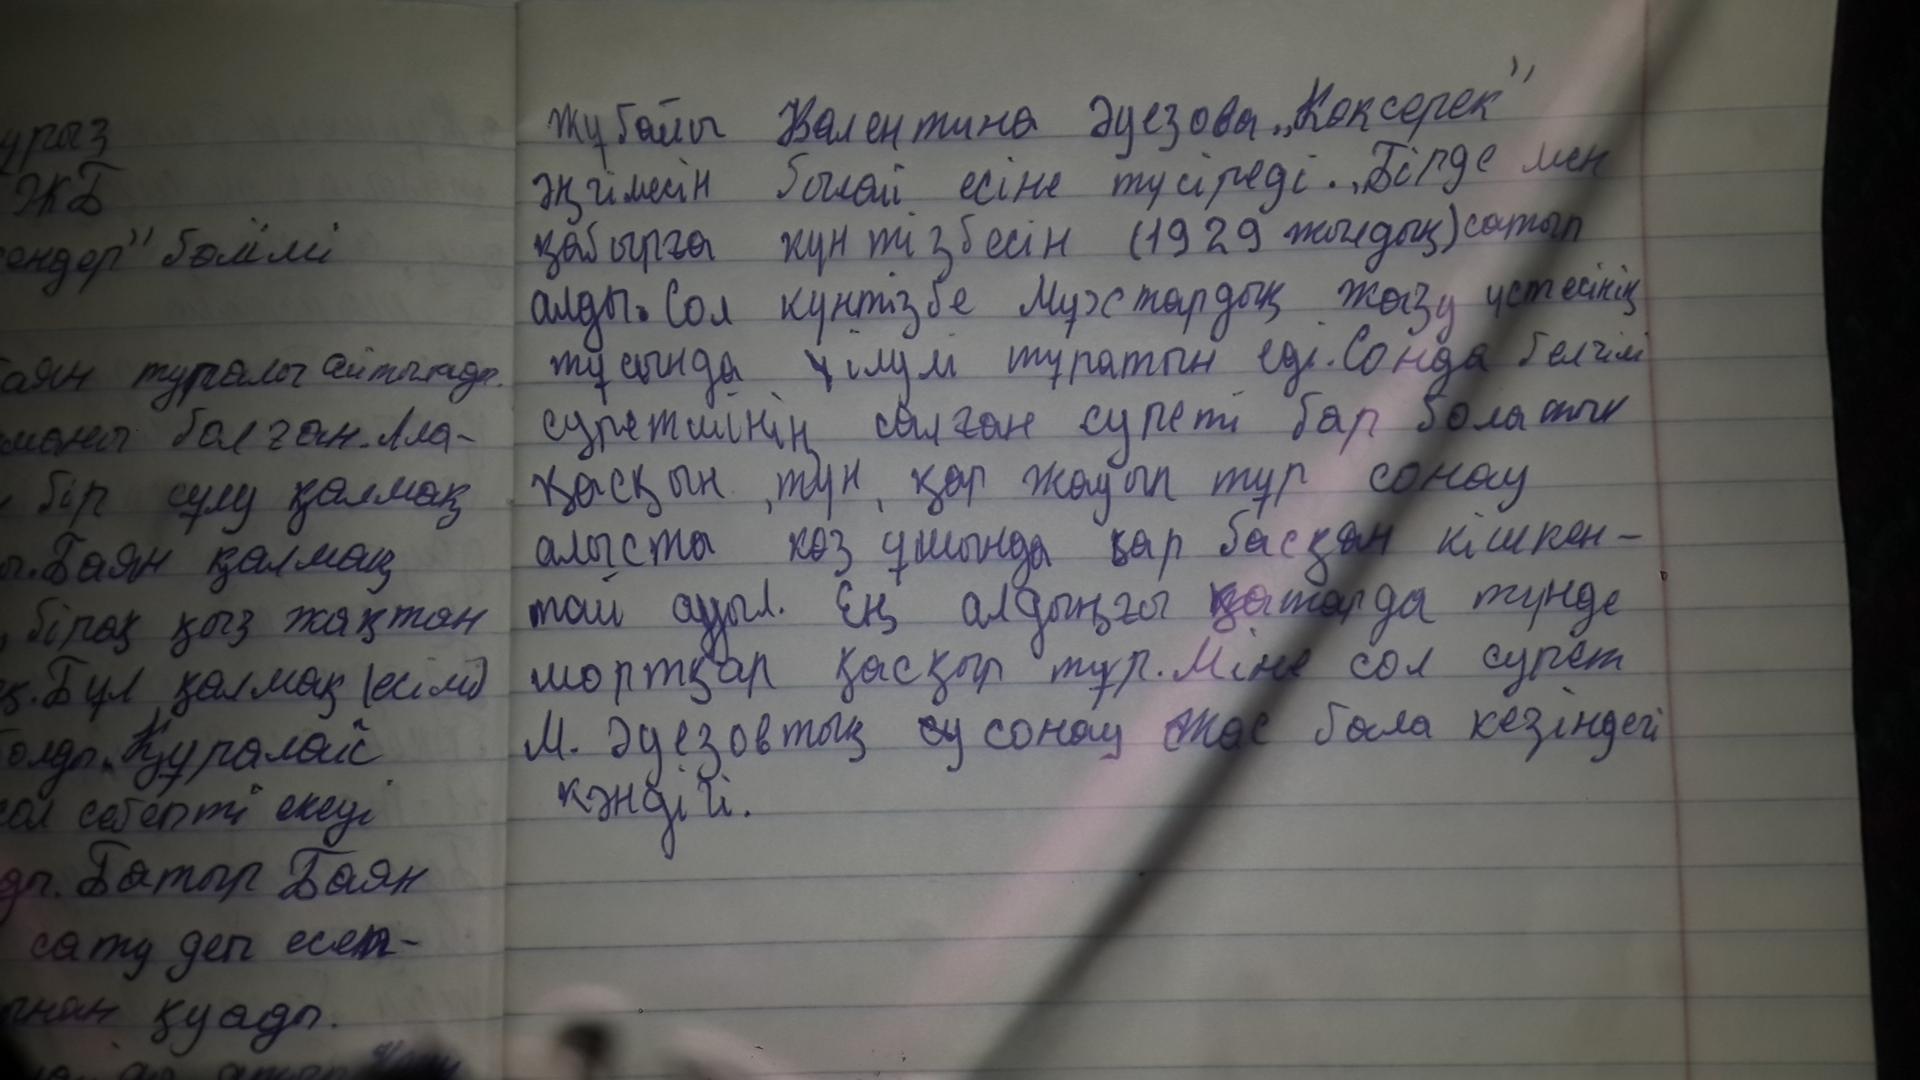 ЖБ
бөлімі
туралы айтылады.
болған. Ала-
бір сұлу қалмақ
Баян қалмақ
бірақ қыз жақтан
Бұл қалмақ (есімі)
Құралай
себепті екеуі
Батыр Баян
сату деп есеп-
қуады.
жұбайы Валентина Әуезова „Көксерек"
әңгімесін былай есіне түсіреді. „Бірде мен
қабырға күнтізбесін (1929 жылдың) сатып
алды. Сол күнтізбе Мұхтардың жазу үстелінің
тұсында ілулі тұратын еді. Сонда белгілі
суретшінің салған суреті бар болатын
қасқын, түн, қар жауып тұр сонау
алыста көз ұшында қар басқан кішкен-
тай ауыл. Ең алдыңғы қатарда түнде
шортқар қасқыр тұр. Міне сол сурет
М. Әуезовтың сонау жас бала кезіндегі
кәндігі.